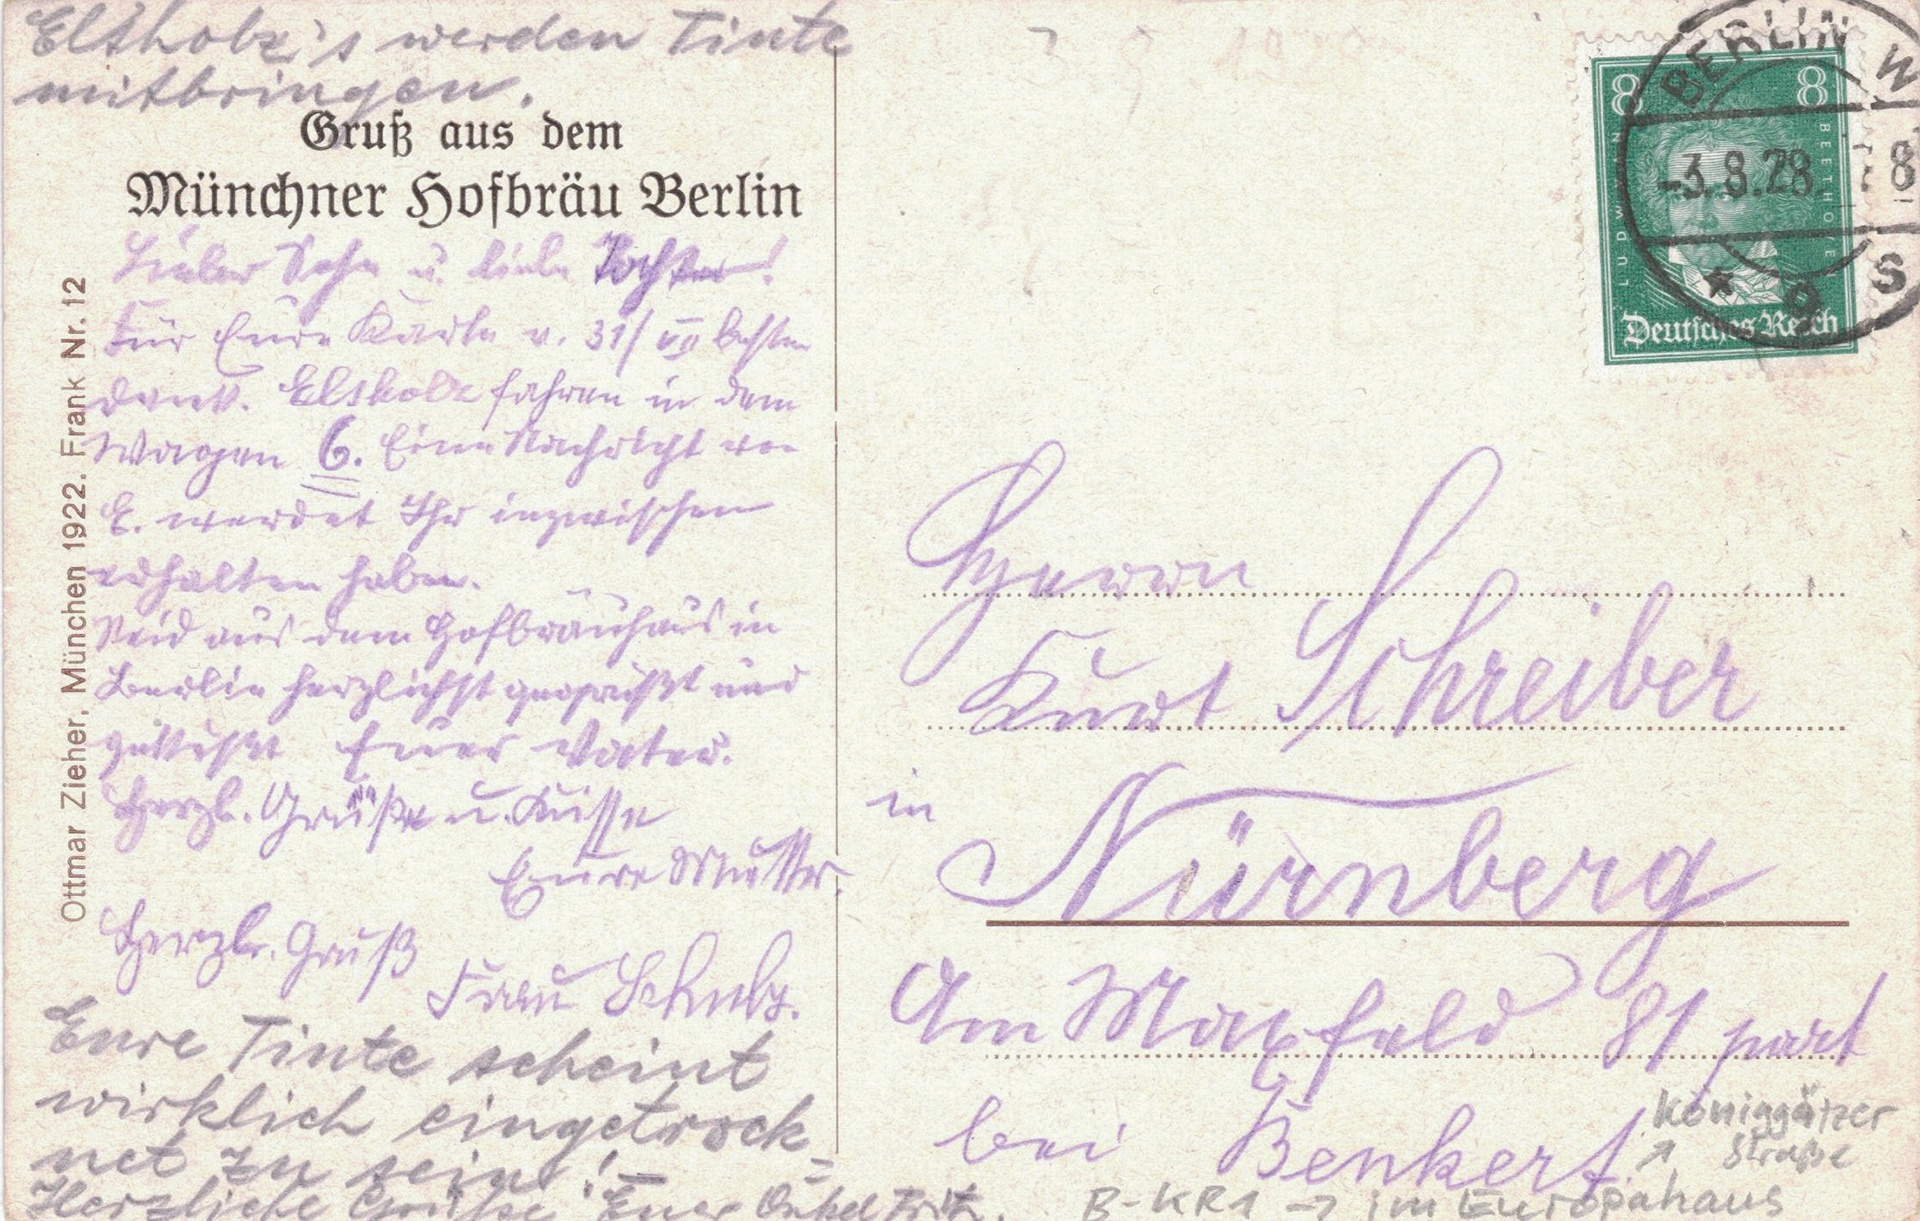 Eltsholz's werden Tinte
mitbringen.
Gruß aus dem
Münchner Hofbräu Berlin
Lieber Sohn u. liebe Tochter!
Für Eure Karte v. 31/VII besten
Dank. Eltsholz fahren in dem
Wagen 6. Eine Nachricht von
E. werdet Ihr inzwischen
erhalten haben.
Seid aus dem Hofbräuhaus in
Berlin herzlichst gegrüßt und
geküsst Euer Vater.
Herzl. Grüße u. Küsse
Eure Mutter.
Herzl. Gruß
Frau Schulz.
Eure Tinte scheint
wirklich eingetrock-
net zu sein! –
Herzliche Grüße Euer Onkel Fritz.
Ottmar Zieher, München 1922. Frank Nr. 12
8 8
LUDWIG VAN BEETHOVEN
Deutsches Reich
BERLIN W
-3.8.28. 8
* 9 S
Herrn
Kurt Schreiber
in Nürnberg
Am Maxfeld 81 part
bei Benkert.
Königgätzer
↗ Straße
B-KR1 → im Europahaus